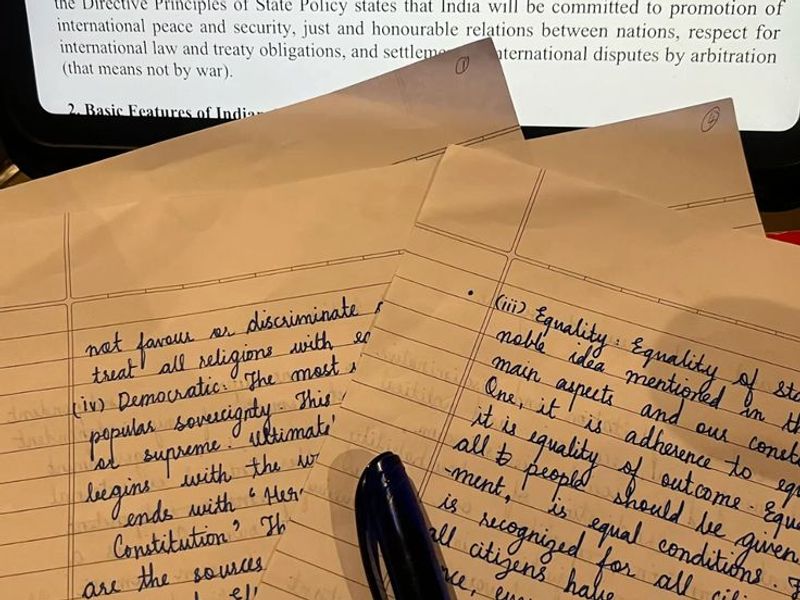 the Directive Principles of State Policy states that India will be committed to promotion of
international peace and security, just and honourable relations between nations, respect for
international law and treaty obligations, and settleme nternational disputes by arbitration
(that means not by war).
2. Basic Features of Indian
1
not favour or discriminate
treat all religions with
(iv) Democratic: The most
popular sovereignty. This
or supreme ultimate
begins with the
ends with "Her
Constitution" Th
are the sources
• (iii) Equality: Equality of sta
noble idea mentioned in th
main aspects and our const
One, it is adherence to eq
it is equality of outcome. Equ
all to people should be given
-ment, is equal conditions.
is recognized for all ci
all citizens have